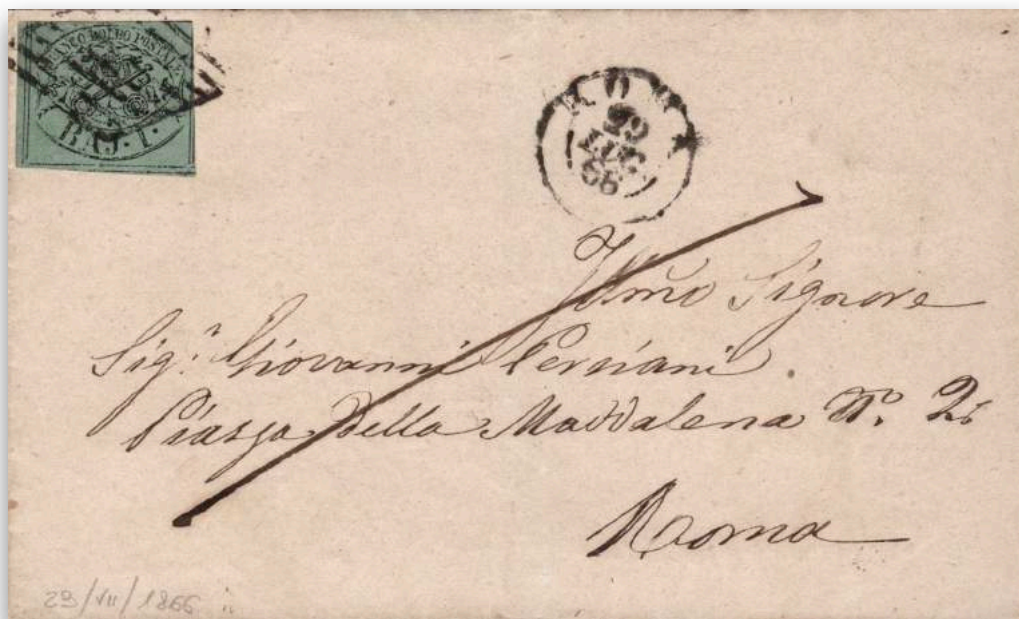 FRANCO BOLLO POSTALE
BAJ. 1.
ROMA
29
LUG
66
Illmo Signore
Sigr. Giovanni Persiani
Piazza della Maddalena No. 2
Roma
29/VII/1866